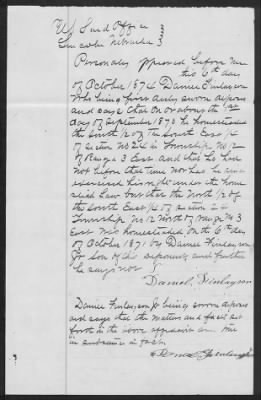 US Land Office
Lincoln Nebraska
Personally appeared before me
this 6th day
of October 1874 Daniel Finlayson
who being first duly sworn deposes
and says that on or about the
day of September 1870 he homesteaded
the South 1/2 of the South East 1/4
of section No 24 in Township No 12
of Range 3 East and that he had
not before that time nor has he since
exercised his right under the home
stead Law but that the North 1/2 of
the South East 1/4 of section 24 in
Township No 12 North of range No 3
East was homesteaded on the 6th day
of October 1871 by Daniel Finlayson
Jr son of this deponent and further
he says not
Daniel Finlayson
Daniel Finlayson Jr being sworn deposes
and says that the matters and facts set
forth in the above affidavit are true
in substance &amp; fact
Daniel Finlayson